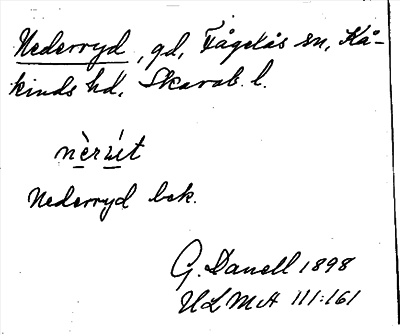 Nederryd, gd, Fågelås sn, Kå-
kinds hd, Skarab. l.
Nederryd bek.
G. Danell 1898
ULMA 111:161